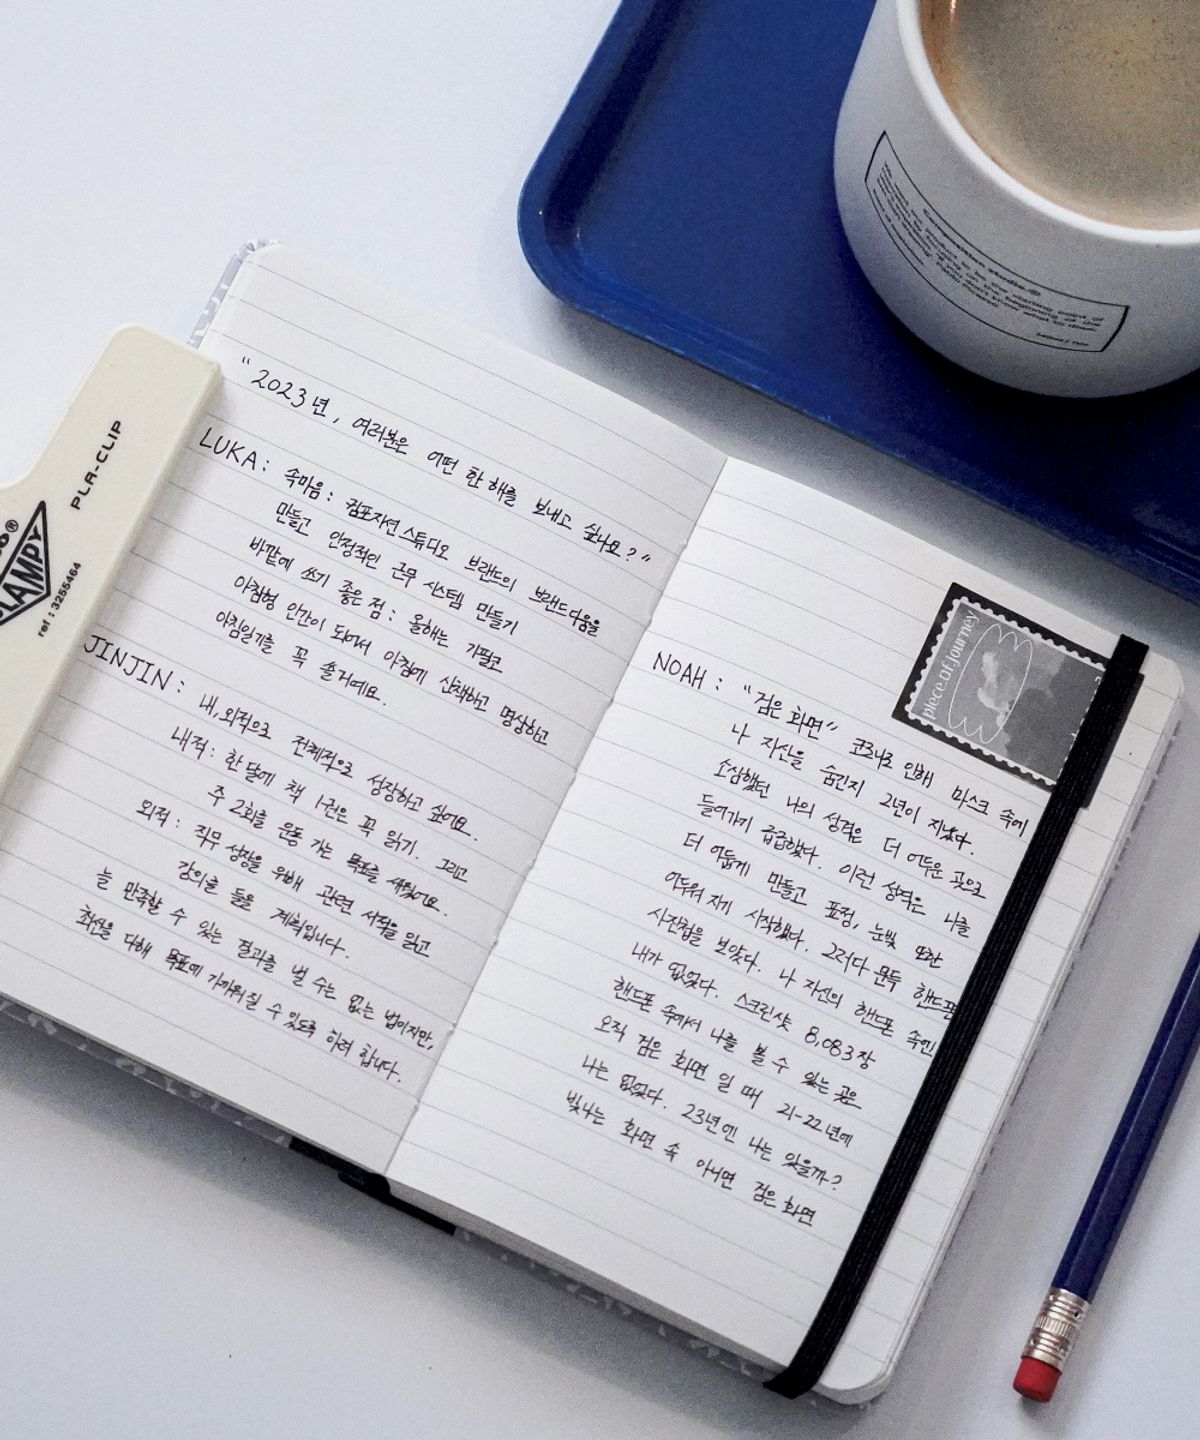 "2023년, 여러분은 어떤 한 해를 보내고 싶나요?"
LUKA: 속마음: 컴포지션 스튜디오 브랜드의 브랜드다움을
만들고 안정적인 근무 시스템 만들기
바깥에 쓰기 좋은 점: 올해는 기필코
아침형 인간이 되어서 아침에 산책하고 명상하고
아침일기를 꼭 쓸거예요.
JINJIN: 내,외적으로 전체적으로 성장하고 싶어요.
내적: 한달에 책 1권은 꼭 읽기. 그리고
주 2회를 운동 가는 목표를 세웠어요.
외적: 직무 성장을 위해 관련 서적을 읽고
강의를 들을 계획입니다.
늘 만족할 수 있는 결과를 벌 수는 없는 법이지만,
최선을 다해 목표에 가까워질 수 있도록 하려 합니다.
NOAH: "검은 화면" 코로나로 인해 마스크 속에
나 자신을 숨긴지 2년이 지났다.
소심했던 나의 성격은 더 어두운 곳으로
들어가기 급급했다. 이런 성격은 나를
더 어둡게 만들고 표정, 눈빛 또한
어두워지기 시작했다. 그러다 문득 핸드폰
사진첩을 보았다. 나 자신의 핸드폰 속엔
내가 없었다. 스크린샷 8,083장
핸드폰 속에서 나를 볼 수 있는 곳은
오직 검은 화면 일 때 21-22년에
나는 없었다. 23년엔 나는 있을까?
빛나는 화면 속 아니면 검은 화면
piece.of.journey
PLA-CLIP
LAMPY
ref : 3255464